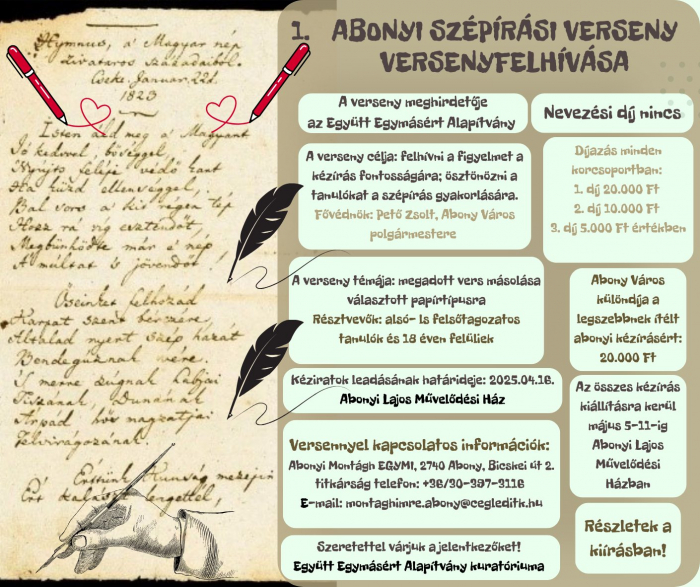 Hymnus, a' Magyar nép
zivataros századaiból.
Cseke, Januar. 22d.
1823
Isten áld meg a' Magyart
Jó kedvvel, bőséggel,
Nyujts feléje védő kart
Ha küzd ellenséggel;
Bal sors a' kit régen tép
Hozz rá víg esztendőt,
Megbűnhödte már e' nép
A' múltat 's jövendőt!
Őseinket felhozád
Kárpát szent bérczére,
Általad nyert szép hazát
Bendegúznak vére.
'S merre zúgnak habjai
Tiszának, Dunának
Árpád hős magzatjai
Felvirágozának.
Értünk Kunság mezején
Ért kalászt lengettél,
1. ABONYI SZÉPÍRÁSI VERSENY
VERSENYFELHÍVÁSA
A verseny meghirdetője
az Együtt Egymásért Alapítvány
Nevezési díj nincs
A verseny célja: felhívni a figyelmet a
kézírás fontosságára; ösztönözni a
tanulókat a szépírás gyakorlására.
Fővédnök: Pető Zsolt, Abony Város
polgármestere
Díjazás minden
korcsoportban:
1. díj 20.000 Ft
2. díj 10.000 Ft
3. díj 5.000 Ft értékben
A verseny témája: megadott vers másolása
választott papírtípusra
Résztvevők: alsó- ls felsőtagozatos
tanulók és 18 éven felüliek
Abony Város
különdíja a
legszebbnek ítélt
abonyi kézírásért:
20.000 Ft
Kéziratok leadásának határideje: 2025.04.16.
Abonyi Lajos Művelődési Ház
Az összes kézírás
kiállításra kerül
május 5-11-ig
Abonyi Lajos
Művelődési
Házban
Versennyel kapcsolatos információk:
Abonyi Montágh EGYMI, 2740 Abony, Bicskei út 2.
titkárság telefon: +36/30-397-3116
E-mail: montaghimre.abony@cegleditk.hu
Részletek a
kiírásban!
Szeretettel várjuk a jelentkezőket!
Együtt Egymásért Alapítvány kuratóriuma